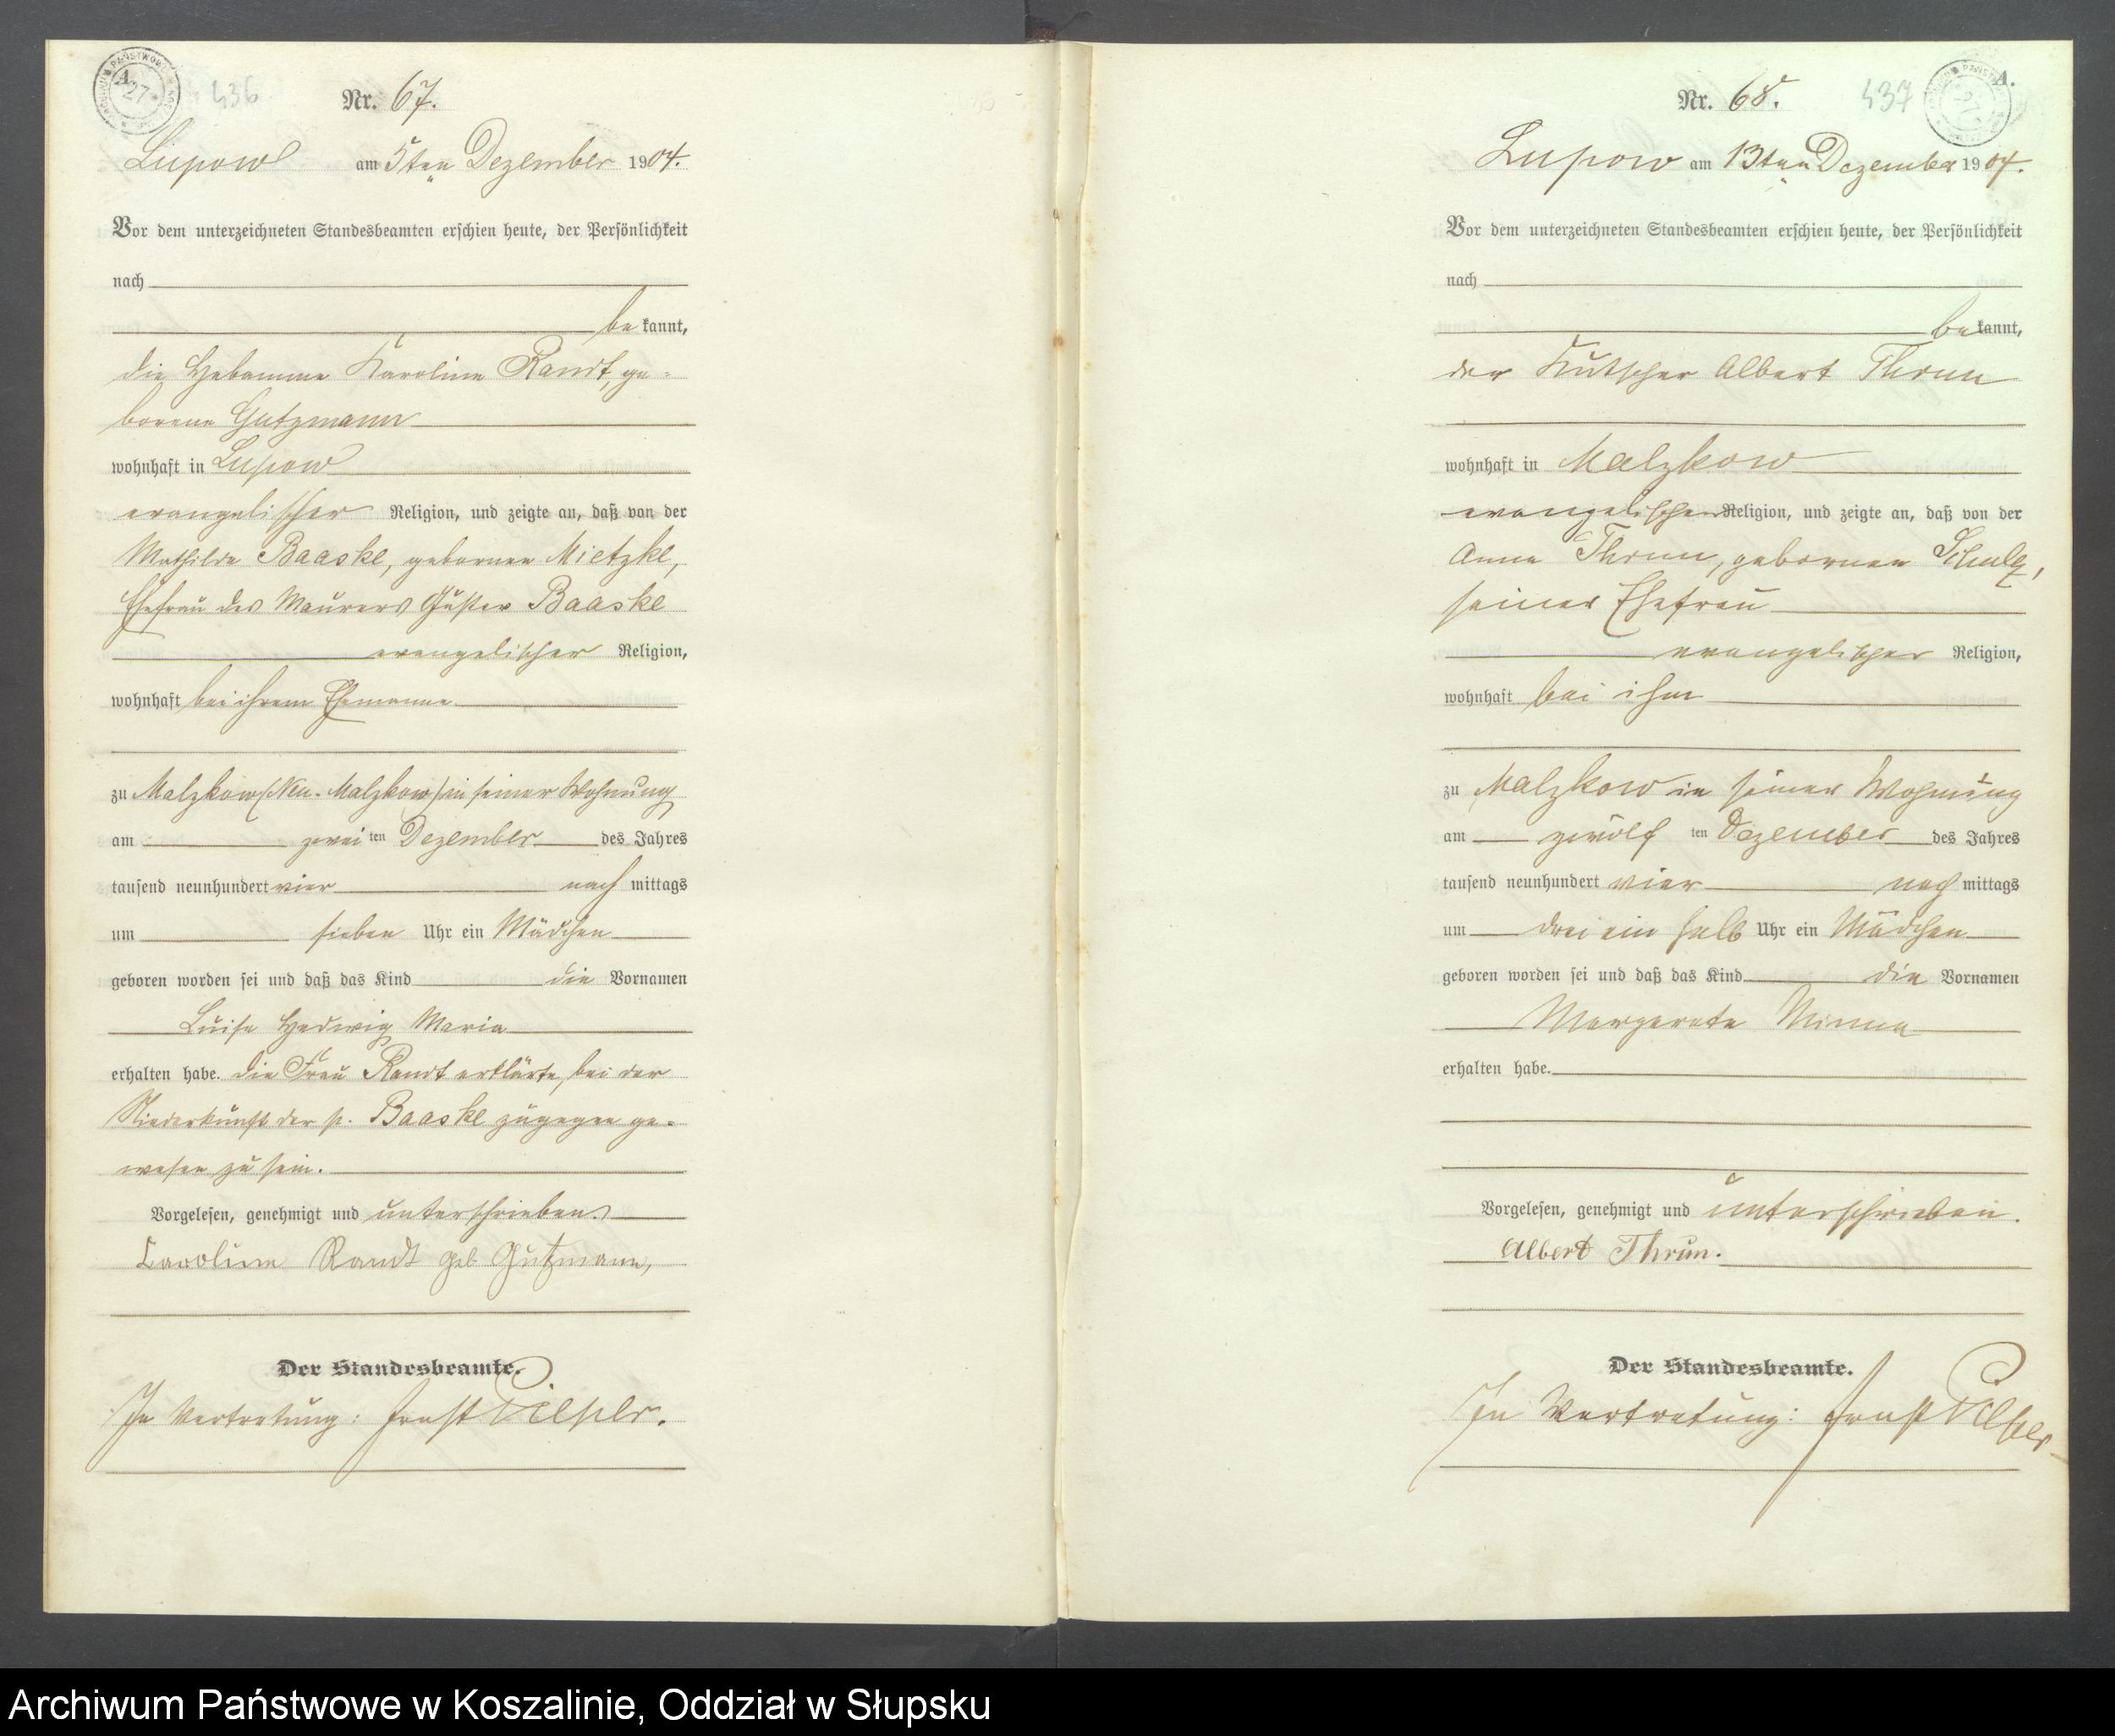 436
Nr. 67.
Lupow am 5ten Dezember 1904.
Vor dem unterzeichneten Standesbeamten erschien heute, der Persönlichkeit
nach
bekannt,
die Hebamme Karoline Randt, ge-
borene Gutzmann
wohnhaft in Lupow
evangelischer Religion, und zeigte an, daß von der
Mathilde Baaske, gebornen Mietzke,
Ehefrau des Maurers Gustav Baaske
evangelischer Religion,
wohnhaft bei ihrem Ehemanne
zu Malzkow/Neu-Malzkow/in seiner Wohnung
am zweiten Dezember des Jahres
tausend neunhundert vier nachmittags
um sieben Uhr ein Mädchen
geboren worden sei und daß das Kind die Vornamen
Luise Hedwig Maria
erhalten habe. Die Frau Randt erklärte, bei der
Niederkunft der p. Baaske zugegen ge-
wesen zu sein.
Vorgelesen, genehmigt und unterschrieben.
Caroline Randt geb. Gutzmann,
Der Standesbeamte.
In Vertretung: Ernst
A.
437
Nr. 68.
Lupow am 13ten Dezember 1904.
Vor dem unterzeichneten Standesbeamten erschien heute, der Persönlichkeit
nach
bekannt,
der Kutscher Albert Thrun
wohnhaft in Malzkow
evangelischer Religion, und zeigte an, daß von der
Anna Thrun, gebornen Schulz,
seiner Ehefrau
evangelischer Religion,
wohnhaft bei ihm
zu Malzkow in seiner Wohnung
am zwölften Dezember des Jahres
tausend neunhundert vier nachmittags
um drei ein halb Uhr ein Mädchen
geboren worden sei und daß das Kind die Vornamen
Margarete Minna
erhalten habe.
Vorgelesen, genehmigt und unterschrieben.
Albert Thrun.
Der Standesbeamte.
In Vertretung: Ernst
Archiwum Państwowe w Koszalinie, Oddział w Słupsku